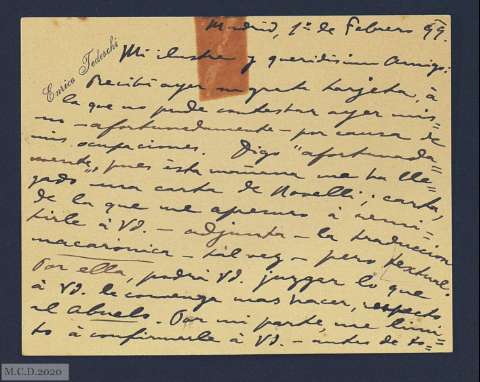 Enrico Tedeschi
Madrid, 1º de Febrero 99.
Mi ilustre y queridísimo Amigo:
Recibí ayer su grata tarjeta, à
la que no pude contestar ayer mis=
mo - afortunadamente - por causa de
mis ocupaciones. Digo "afortunada=
mente", pues ésta mañana me ha lle=
gado una carta de Novelli; carta,
de la que me apresuro à remi=
tirle à VD. - adjunta - la traduccion
macarónica - tal vez - pero textual.
Por ella, podrá VD. juzgar lo que
à VD. le convenga mas hacer, respecto
al Abuelo. Por mi parte, me limi=
to à confirmarle à VD. - antes de to=
M.C.D.2020